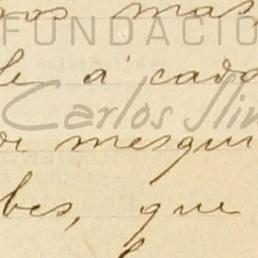 mas
FUNDACIÓ
le á cada
Carlos Slim
mesqui
bes, que